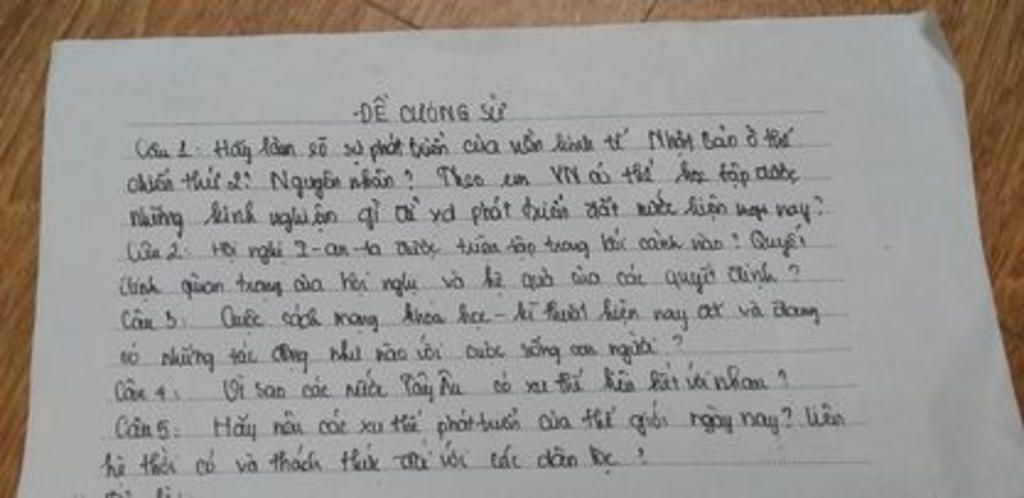 -ĐỀ CƯƠNG SỬ
Câu 1: Hãy làm rõ sự phát triển của nền kinh tế Nhật Bản ở thế
chiến thứ 2? Nguyên nhân? Theo em VN có thể học tập được
những kinh nghiện gì để xd phát triển đất nước hiện nay?
Câu 2: Hội nghị I-an-ta được triệu tập trong bối cảnh nào? Quyết
định quan trọng của hội nghị và hệ quả của các quyết định?
Câu 3: Cuộc cách mạng khoa học - kĩ thuật hiện nay đã và đang
có những tác động như nào với cuộc sống con người?
Câu 4: Vì sao các nước Tây Âu có xu thế liên kết với nhau?
Câu 5: Hãy nêu các xu thế phát triển của thế giới ngày nay? Liên
hệ thời cơ và thách thức đối với các dân tộc?